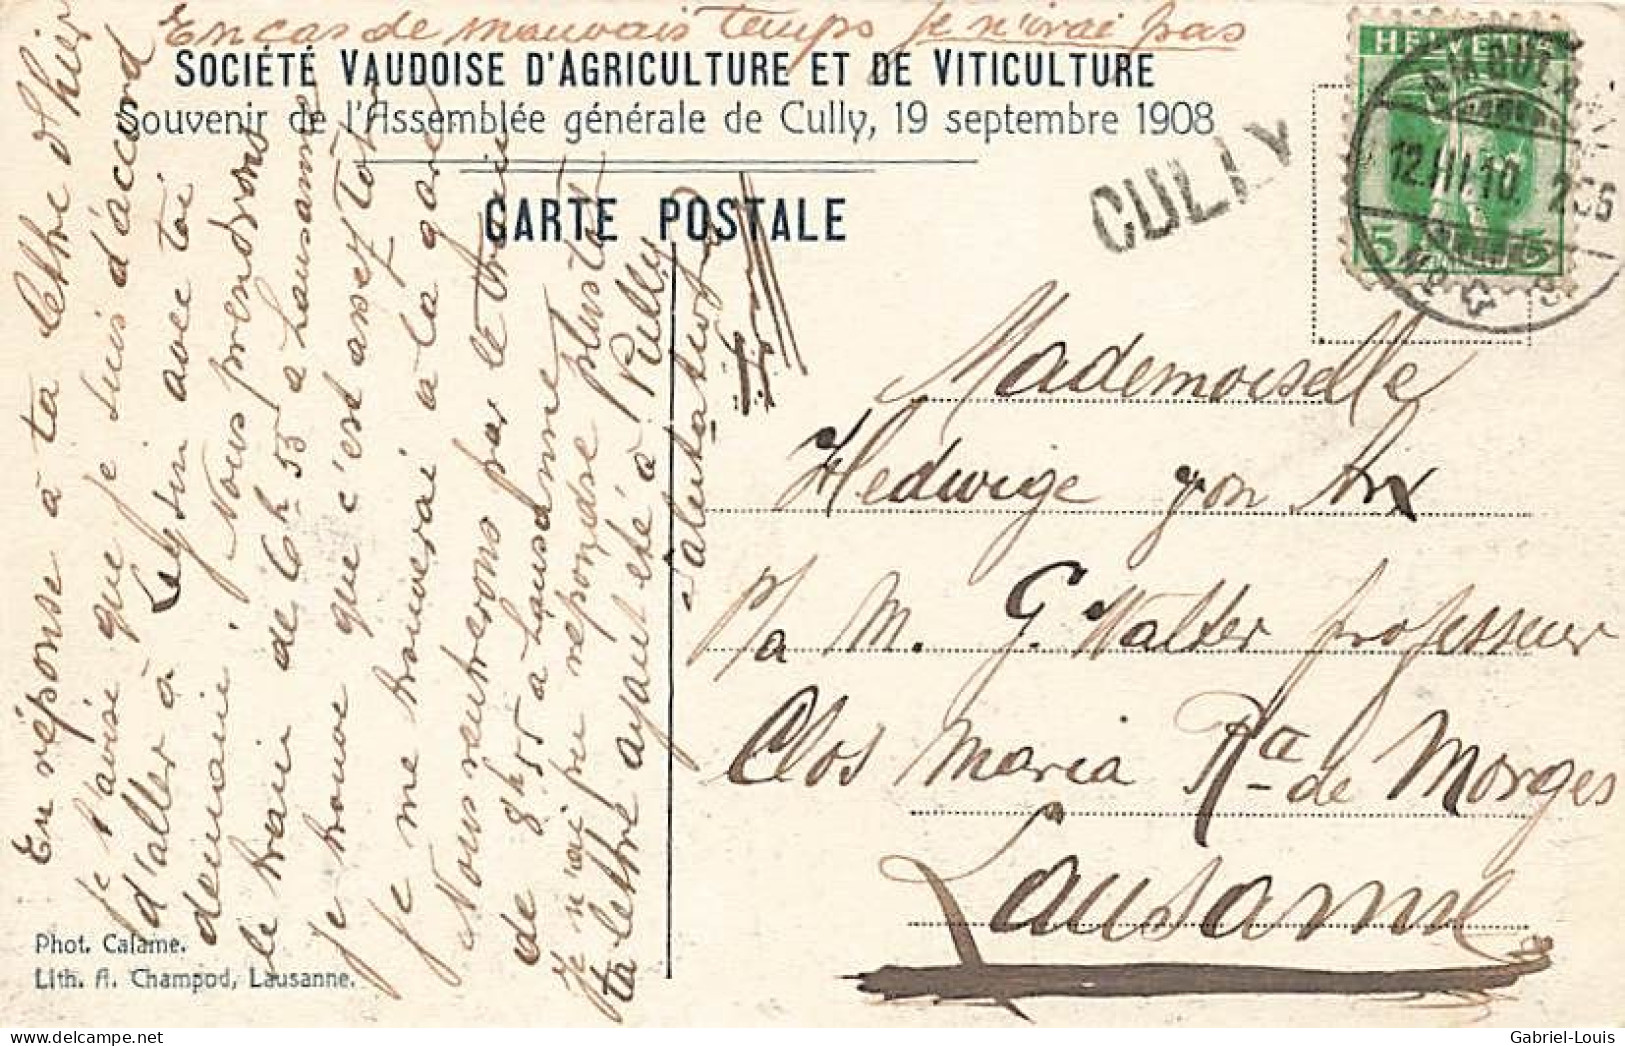 En cas de mauvais temps je n'irai pas
SOCIÉTÉ VAUDOISE D'AGRICULTURE ET DE VITICULTURE
Souvenir de l'Assemblée générale de Cully, 19 septembre 1908
CARTE POSTALE
CULLY
HELVETIA
5 5
AMBULANT
12.III.10. 266
No 9
En réponse à ta lettre d'hier
je t'avise que je suis d'accord
d'aller à Leysin avec toi
demain. Nous prendrons
le train de 6h 55 à Lausanne
je trouve que c'est assez tôt
je me trouverai à la gare
Nous rentrerons par le train
de 8h 55 à Lausanne
Je n'ai pu répondre plus tôt
ta lettre ayant été à Pully
Salutations
Mademoiselle
Hedwige von Arx
p/a M. G. Walter professeur
Clos Maria Rte de Morges
Lausanne
Phot. Calame.
Lith. A. Champod, Lausanne.
delcampe.net
Gabriel-Louis